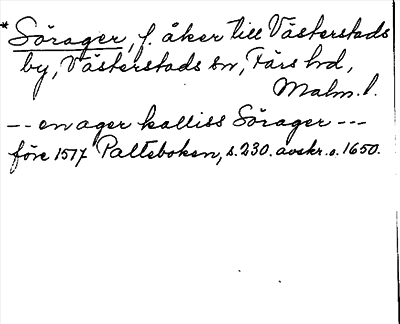 * Sörager, f. åker till Västerstads
by, Västerstads sn, Färs hd,
Malm. l.
-- en ager kalliss Sörager ---
före 1517 Palteboken, s. 230. avskr. o. 1650.